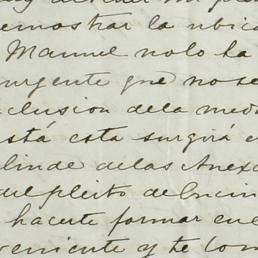 mostrar la ubica
Manuel nolo ha
urgente que no se
clusion dela med
está esta surgirá e
linde delas Anexo
del pleito de
hacerte formar en
veniente y te com